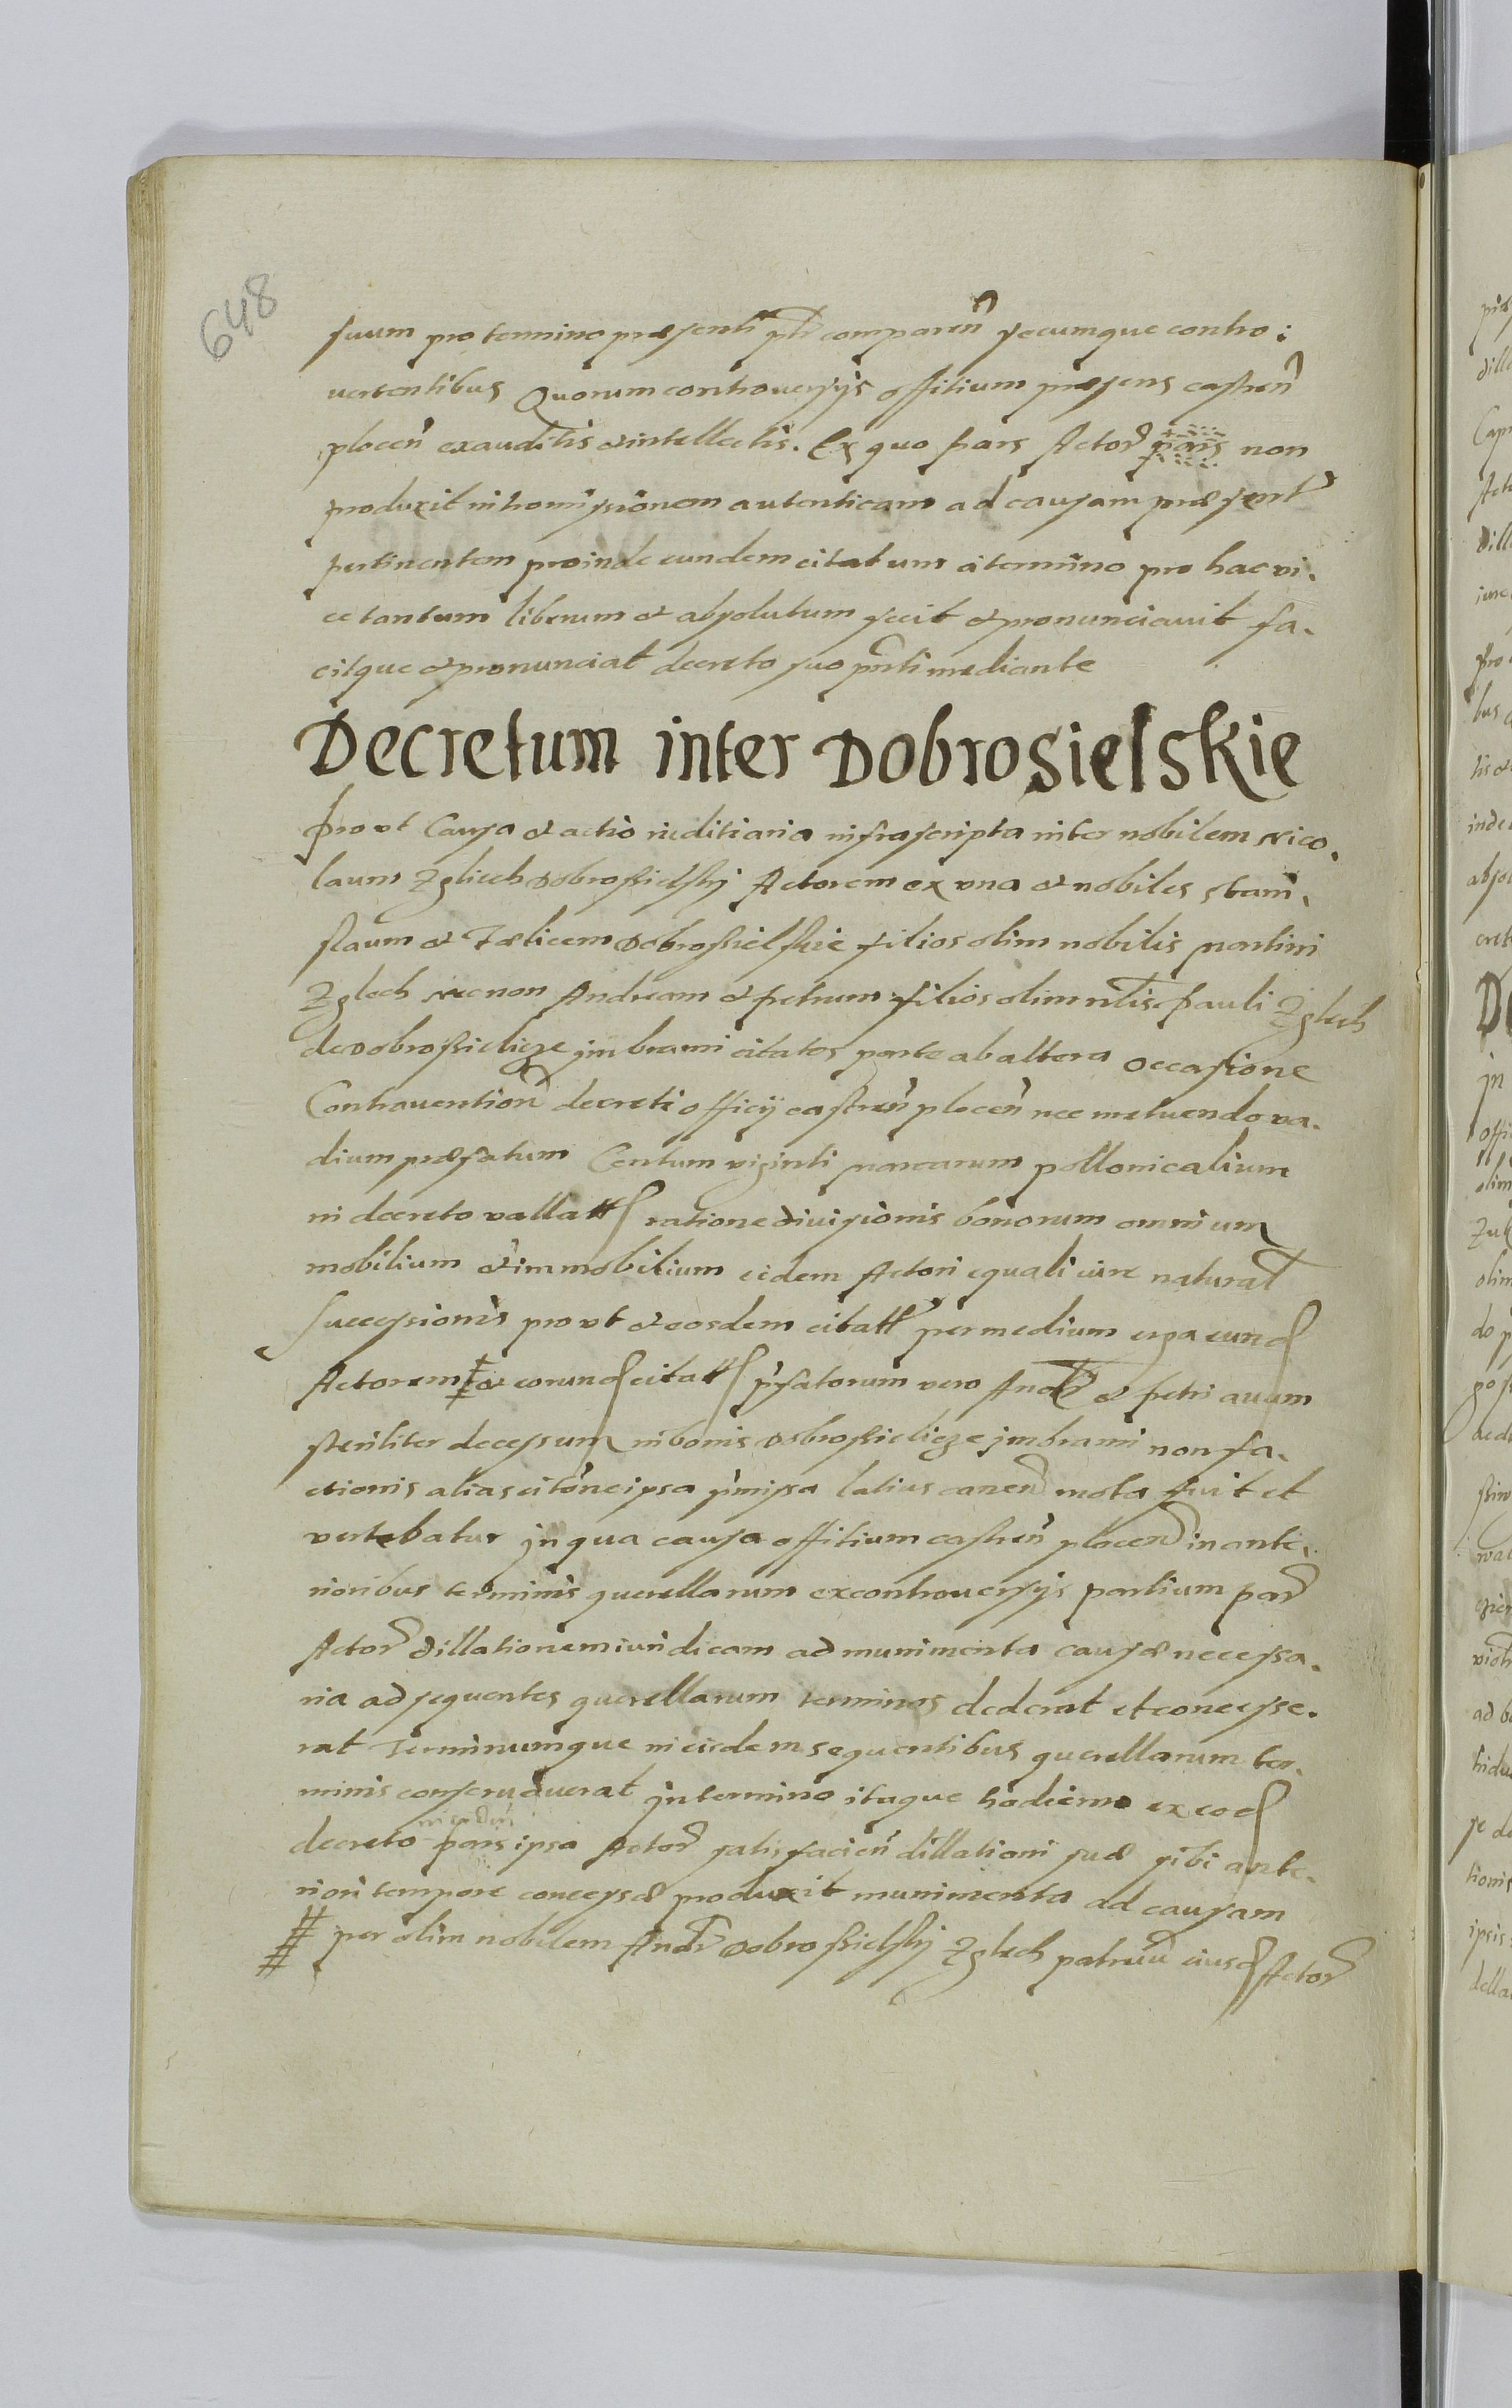 648
suum pro termino præsenti ptr comparen secumque contro:
uertentibus Quorum controuersijs offitium præsens castren
plocen exauditis et intellectis. Ex quo pars Actor pars non
produxit intromissionem autenticam ad causam præsent
pertinentem proinde eundem citatum a termino pro hac vi.
ce tantum liberum et absolutum fecit et pronunciauit fa.
citque et pronunciat decreto suo pnti mediante
Decretum inter Dobrosielskie
Prout Causa et actio iuditiaria infrascripta inter nobilem Nico.
laum Zgliech Dobrossielskj Actorem ex vna et nobiles Stani.
slaum et Fælicem Dobrossielskie filios olim nobilis Martini
Zglech necnon Andream et Petrum filios olim nlis Pauli Zglech
de Dobrossielicze jmbrami citatos parte ab altera occasione
Contrauention decreti officij castren plocen nec metuendo va.
dium præfatum Centum viginti marcarum pollonicalium
in decreto vallatt ratione diuisionis bonorum omnium
mobilium et immobilium eidem Actori equali iure natural
successionis prout et eosdem citatt per medium erga eund
Actorem ‡ et eorund citatt pfatorum vero Andr et Petri auum
steriliter decessum in bonis Dobrossielicze jmbrami non fa.
ctionis alias citone ipsa pmissa latius canen mota fuit et
vertebatur jn qua causa offitium castren plocen in ante.
rioribus terminis querellarum ex controuersijs partium par
Actor dillationem iuridicam ad munimenta causæ necessa.
ria ad sequentes querellarum terminos dederat et concesse.
rat Terminumque in eisdem sequentibus querellarum ter.
minis conseruauerat jn termino itaque hodierno ex eod
decreto pars ipsa Actor satisfacien dillationi suæ sibi ante.
riori tempore concessæ produxit munimenta ad causam
⧧ per olim nobilem Andr Dobrossielskj Zglech patruu eiusd Actor